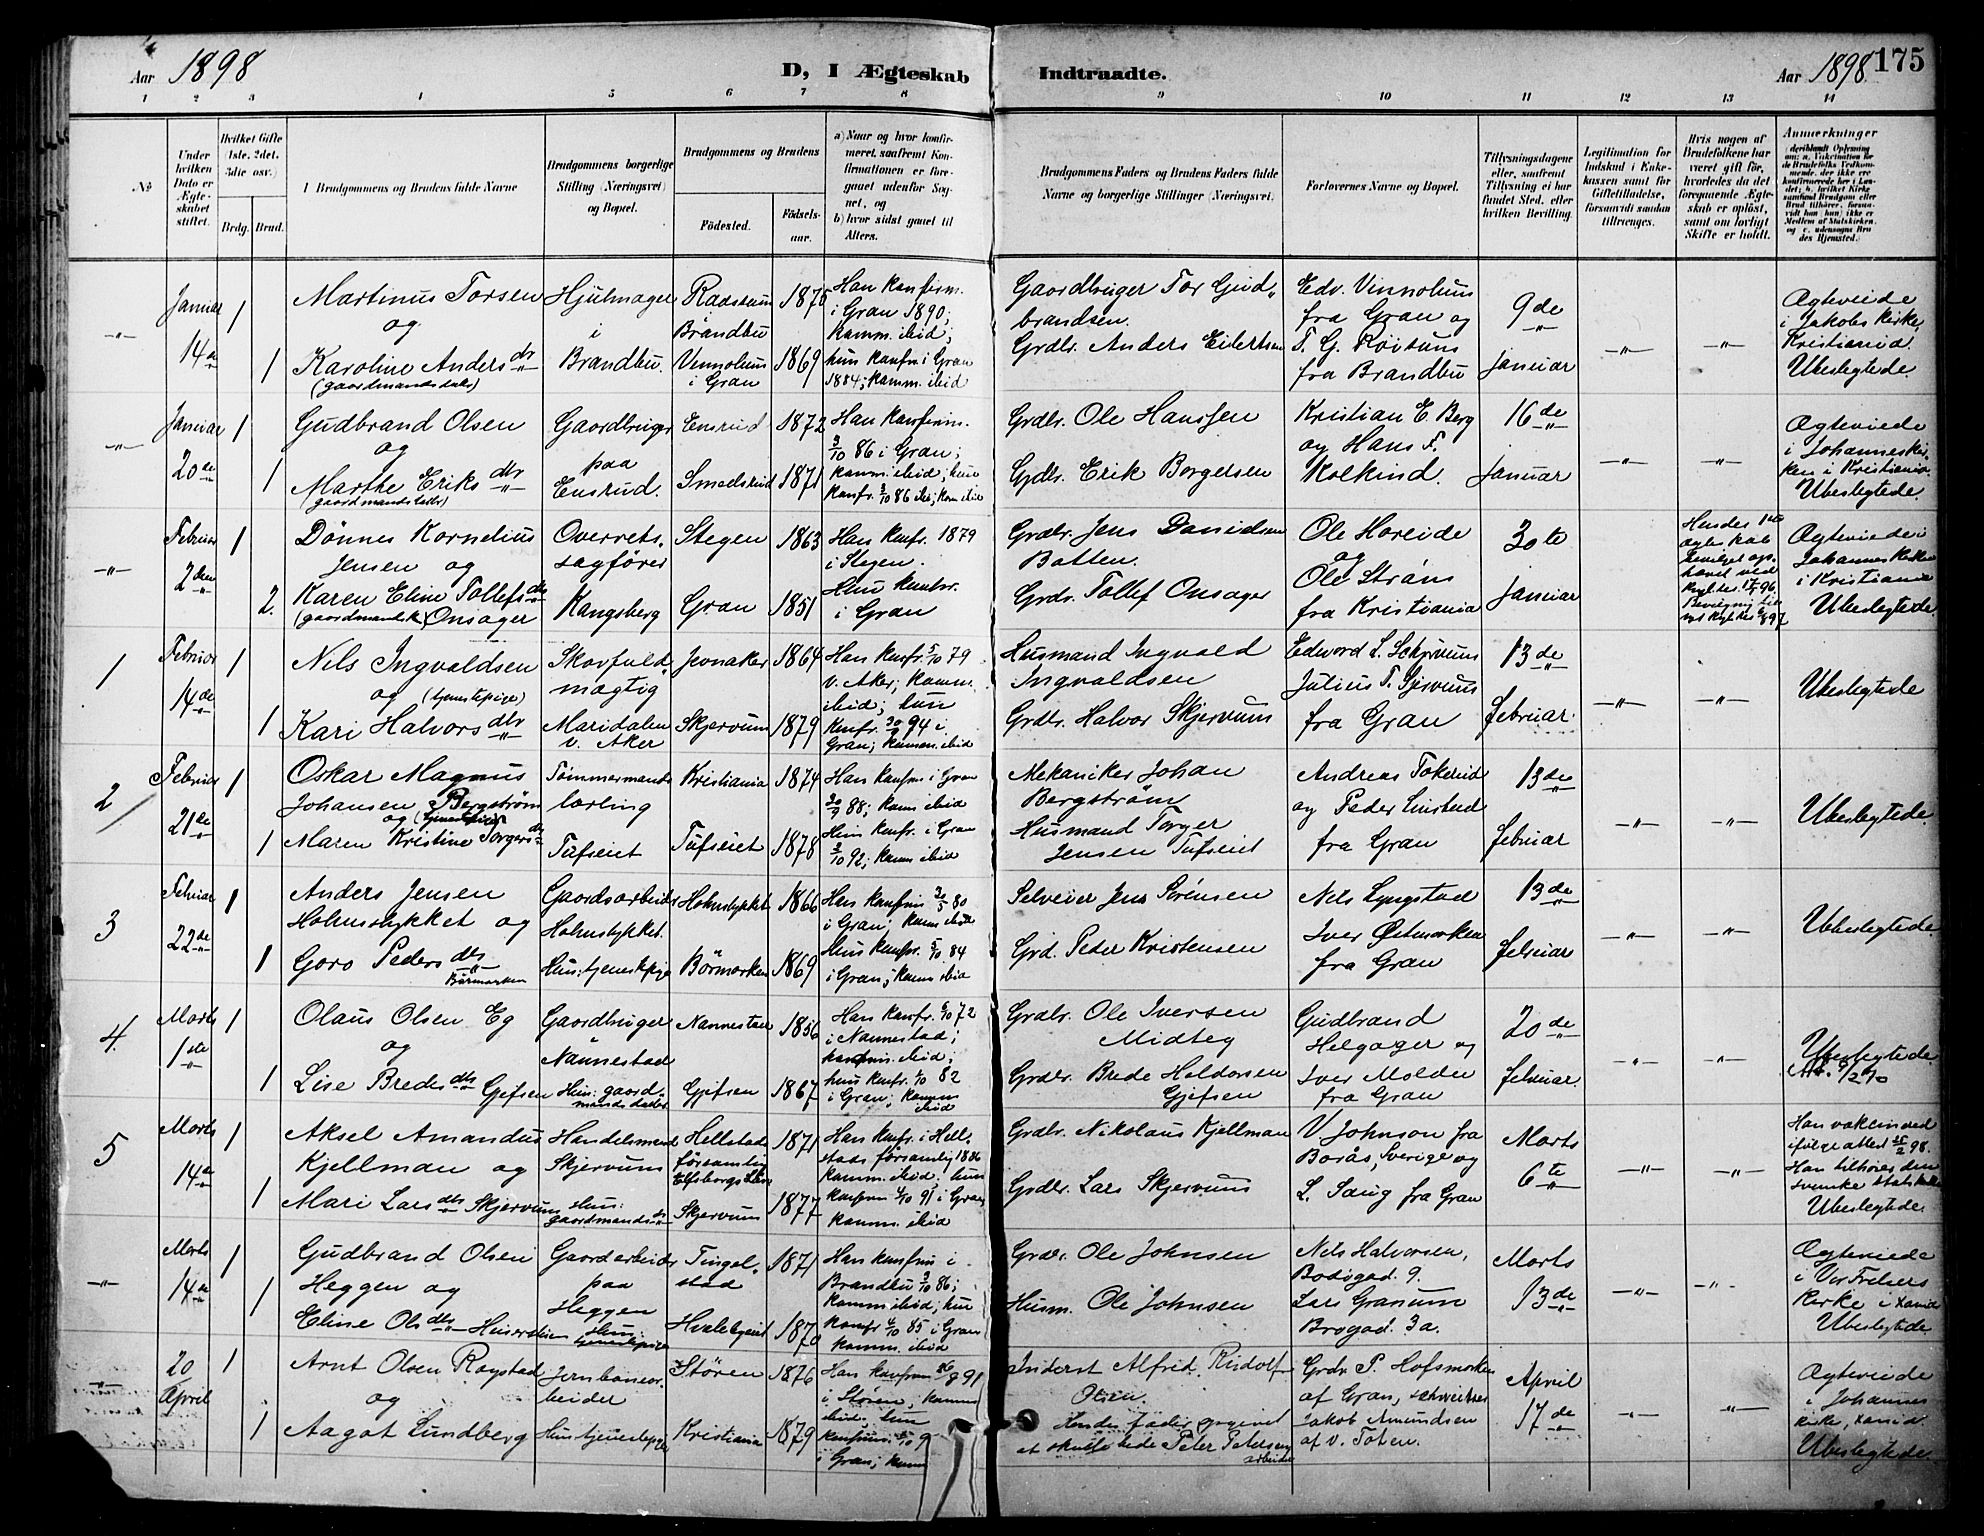 Aar 1898
D, I Ægteskab
Indtraadte.
Aar 1898
175
1 2 3 4 5 6 7 8 9 10 11 12 13 14
No
Under hvilken Dato er Ægteskabet stiftet.
Hvilket Gifte (1ste, 2det, 3die osv.)
Brdg. Brud.
Brudgommens og Brudens fulde Navne
Brudgommens borgerlige Stilling (Næringsvei) og Bopæl.
Brudgommens og Brudens
Fødested.
Fødselsaar.
a) Naar og hvor konfirmeret, saafremt Konfirmationen er foregaaet udenfor Sognet, og
b) hvor sidst gaaet til Alters.
Brudgommens Faders og Brudens Faders fulde Navne og borgerlige Stillinger (Næringsvei).
Forlovernes Navne og Bopæl.
Tillysningsdagene eller, saafremt Tillysning ei har fundet Sted, efter hvilken Bevilling.
Legitimation for Indskud i Enkekassen samt for Giftetilladelse, forsaavidt saadan tiltrænges.
Hvis nogen af Brudefolkene har været gift før, hvorledes da det foregaaende Ægteskab er opløst, samt om lovligt Skifte er holdt.
Anmerkninger
Januar 14de
1
1
Martinus Torsen
og
Karoline Andersdtr
(gaardmandsdatr)
Hjulmager
i
Brandbu.
Raastum
Brandbu
Vinnolum
i Gran
1875
1869
Han konfirm.
i Gran 1890;
komm. ibid;
hun konfm i Gran
1884; komm. ibid
Gaardbruger Tor Gudbrandsen.
Grdbr. Anders Eilertsen
Edv. Vinnolum
fra Gran og
T. G. Røisum
fra Brandbu
9de
Januar
Ægteviede
i Jakobs kirke,
Kristiania.
Ubeslegtede.
Januar 20de
1
1
Gudbrand Olsen
og
Marthe Eriksdtr
(gaardmandsdatr)
Gaardbruger
paa
Ensrud.
Ensrud
Smedsrud
1872
1871
Han konfirm.
3/10 86 i Gran;
komm. ibid; hun
konfr. 3/10 86 ibid; kom ibid
Grdbr. Ole Hanssen
Grdbr. Erik Borgersen
Kristian E. Berg
og Hans F.
Kolkind.
16de
Januar
Ægteviede
i Johanneskirken i Kristiania.
Ubeslegtede.
Februar 2den
1
2.
Dønnes Kornelius
Jensen og
Karen Eline Tollefsdtr
Onsager
Overretssagfører
Kongsberg
Stegen
Gran
1863
1851
Han konfr. 1879
i Stegen.
Hun konfr.
i Gran
Grdbr. Jens Danielsen
Botten.
Grdr. Tollef Onsager
Ole Horeide
og
Ole Strøm
fra Kristiania
30te
Januar
Hendes 1ste
Ægteskab
Ægteviede i
Johannes kirke
i Kristiania
Ubeslegtede.
1
Februar 14de
1
1
Nils Ingvaldsen
og (tjenestepige)
Kari Halvorsdtr
Skovfuldmægtig
Maridalen
v. Aker
Jevnaker
Skjervum
1864
1879
Han konfr. 5/10 79
v. Aker; komm.
ibid; hun
konfr. 30/9 94 i
Gran; komm. ibid
Husmand Ingvald
Ingvaldsen
Grdbr. Halvor Skjervum
Edvard L. Schjervum
Julius T.
fra Gran
13de
Februar.
Ubeslegtede
2
Februar 21de
1
1
Oskar Magnus
Johansen Bergstrøm
og
Maren Kristine Torgersdtr
Tømmermands
lærling
Tufseiet
Kristiania
Tufseiet
1874
1878
Han konfm i Gran
30/9 88; komm ibid
Hun konfr. i Gran
2/10 92; komm ibid
Mekaniker Johan
Bergstrøm
Husmand Torger
Jensen Tufseiet
Andreas Tokerud
og Peder Linstad
fra Gran
13de
Februar
Ubeslegtede.
3
Februar 22de
1
1
Anders Jensen
Holmstykket og
Goro Pedersdtr
Børmarken
Gaardsarbeider
Holmstykket.
Hun: tjenestepige
Holmstykket
Børmarken
1866
1869
Han konfirm
i Gran; komm ibid
Hun konfr. 5/10 84
i Gran; komm ibid
Selveier Jens Sørensen
Grd. Peder Kristensen
Nils Lyngstad
Iver Østmorken
fra Gran
13de
Februar
Ubeslegtede.
4.
Marts 1ste
1
1
Olaus Olsen Eg
og
Lise Bredesdtr Gjefsen
Gaardbruger
Nannestad
Hun: gaardmandsdatter
Nannestad
Gjefsen
1856
1867
Han konfr. 6/10 72
i Nannestad;
komm. ibid;
hun konfr. 1/10 82
i Gran; komm
ibid
Grdbr. Ole Iversen
Midteg
Grdbr. Brede Haldorsen
Gjefsen
Gudbrand
Helgager og
Iver Molden
fra Gran
20de
Februar
Ubeslegtede
5
Marts 14de
1
1
Aksel Amandus
Kjellman og
Mari Larsdtr Skjervum
Handelsmand
Skjervum
Hun:
Hellstads
församling
Elfsborgs Län
Skjervum
1871
1877
Han konfr. i Hellstads församling 1886
komm. ibid; hun
konfm 4/10 91 i Gran
komm. ibid
Grdbr. Nikolaus Kjellman
Grdbr. Lars Skjervum
V Johnson fra
Borås, Sverige og
L. Saug fra Gran
Marts
6te
Han vakcinered
ifølge attest 25/2 98.
Han tilhører den
svenske statskirke
Ubeslegtede.
Marts 14de
1
1
Gudbrand Olsen
Heggen og
Eline Olsdtr
Gaardarbeider
paa
Heggen
Hun:
tjenestepige
Tingelstad
Hvalebyeiet
1871
1870
Han konfm i
Brandbu 3/10 86;
komm. ibid; hun
konfr 4/10 85 i Gran
komm. ibid
Grdr. Ole Johnsen
Husm. Ole Johnsen
Nils Halvorsen,
Bodøgad. 9.
Lars Granum
Brogad. 3a.
Marts
13de
Ægteviede
i Vor Frelsers
kirke i Xania
Ubeslegtede.
20 April
1
1
Arnt Olsen Rogstad
og
Aagot Lundberg
Jernbanearbeider
Hun: tjenestepige
Støren
Kristiania
1876
1879
Han konfirm
i Støren; komm
ibid; hun
konfirm.
i Gran; komm
Inderst Alfred Rudolf
Olsen.
Hendes fader opgivet
at skulle hede Peter Petersen
arbeider
Grdr P. Hofsmarken
af Gran,
Jakob Amundsen
af V. Toten.
April
17de
Ægteviede
i Johannes
kirke, Xania.
Ubeslegtede.